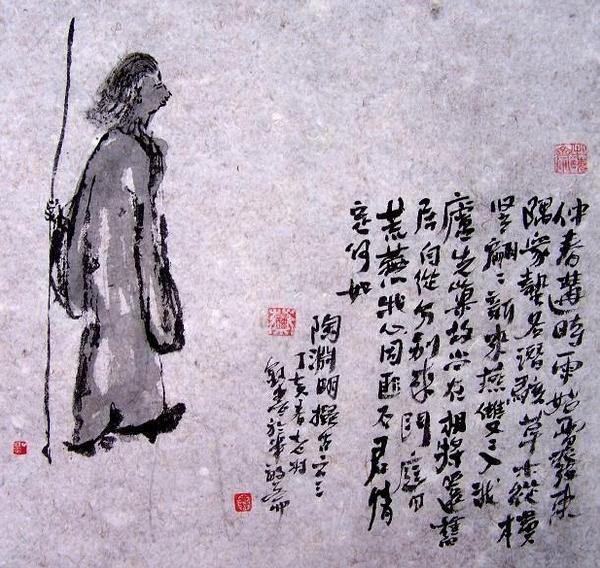 仲春遘時雨始雷發東
隅衆蟄各潛駭草木從橫
翩〻新來燕雙〻入我
廬先巢故尚在相將還舊
居自從分別來門庭日
荒蕪我心固匪石君情
定何如
陶淵明擬古之三
丁亥春